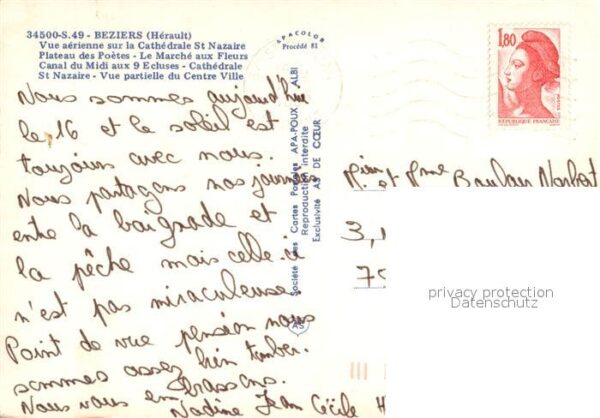 34500-S.49 - BEZIERS (Hérault)
Vue aérienne sur la Cathédrale St Nazaire
Plateau des Poètes - Le Marché aux Fleurs
Canal du Midi aux 9 Ecluses - Cathédrale
St Nazaire - Vue partielle du Centre Ville
APACOLOR
Procédé 81
1,80
REPUBLIQUE FRANÇAISE
Société des Cartes Postales APA-POUX - ALBI
Reproduction interdite
Exclusivité AS DE CŒUR
Nous sommes aujourd'hui
le 16 et le soleil est
toujours avec nous.
Nous partageons nos journées
entre la baignade et
la pêche mais celle ci
n'est pas miraculeuse.
Point de vue pension nous
sommes assez bien tomber.
Nous vous embrassons.
Nadine Jean Cécile H
et Mme Norbert
3,
75
privacy protection
Datenschutz